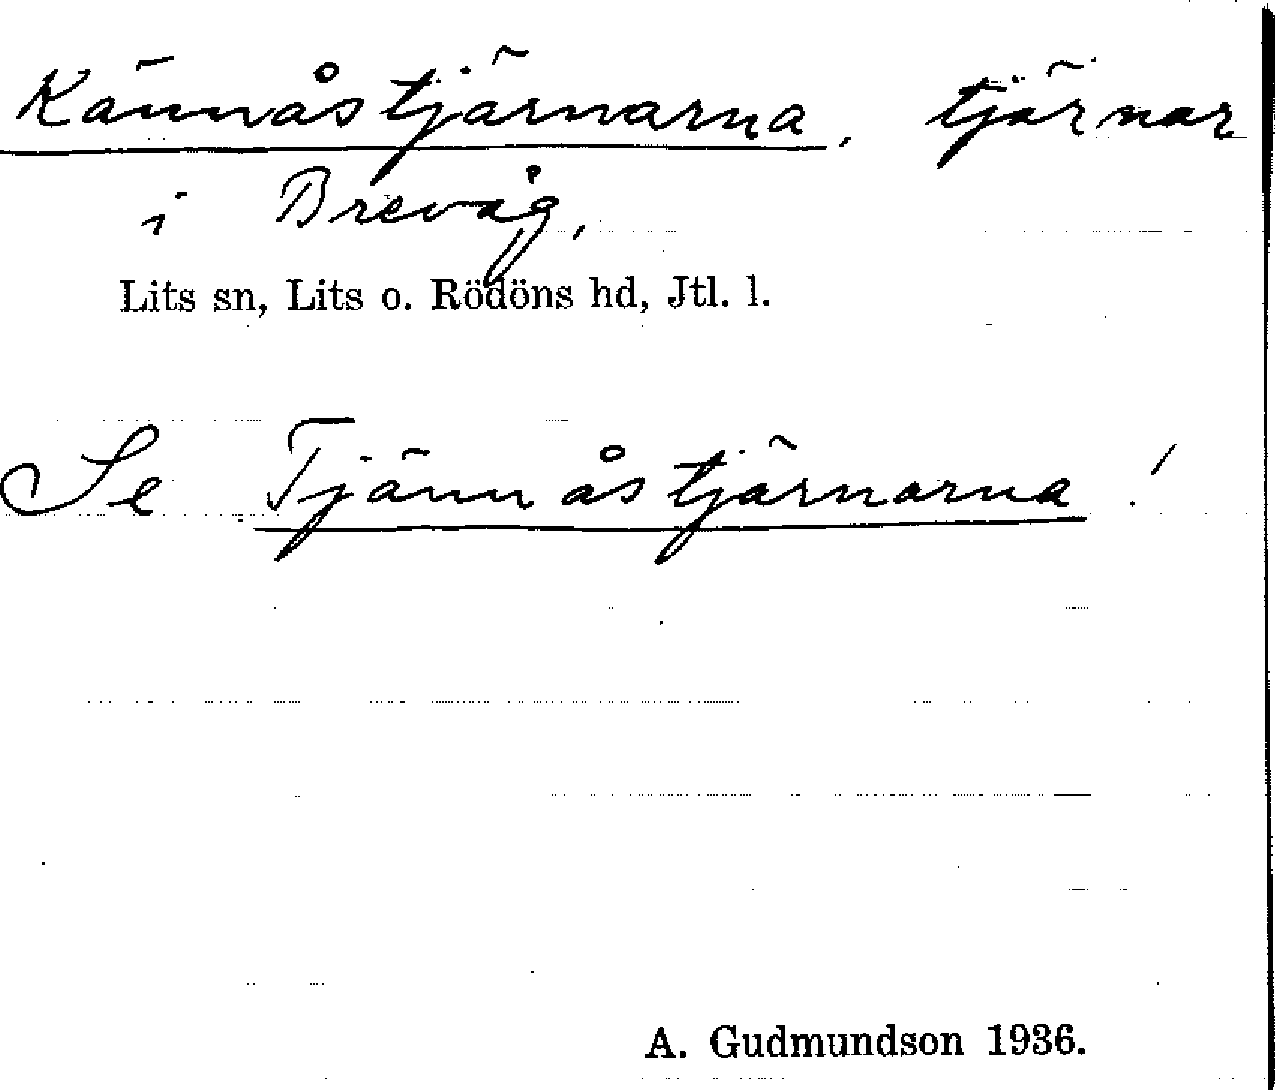 Kännåstjärnarna, tjärnar
i Brevåg,
Lits sn, Lits o. Rödöns hd, Jtl. l.
Se Tjännåstjärnarna!
A. Gudmundson 1936.